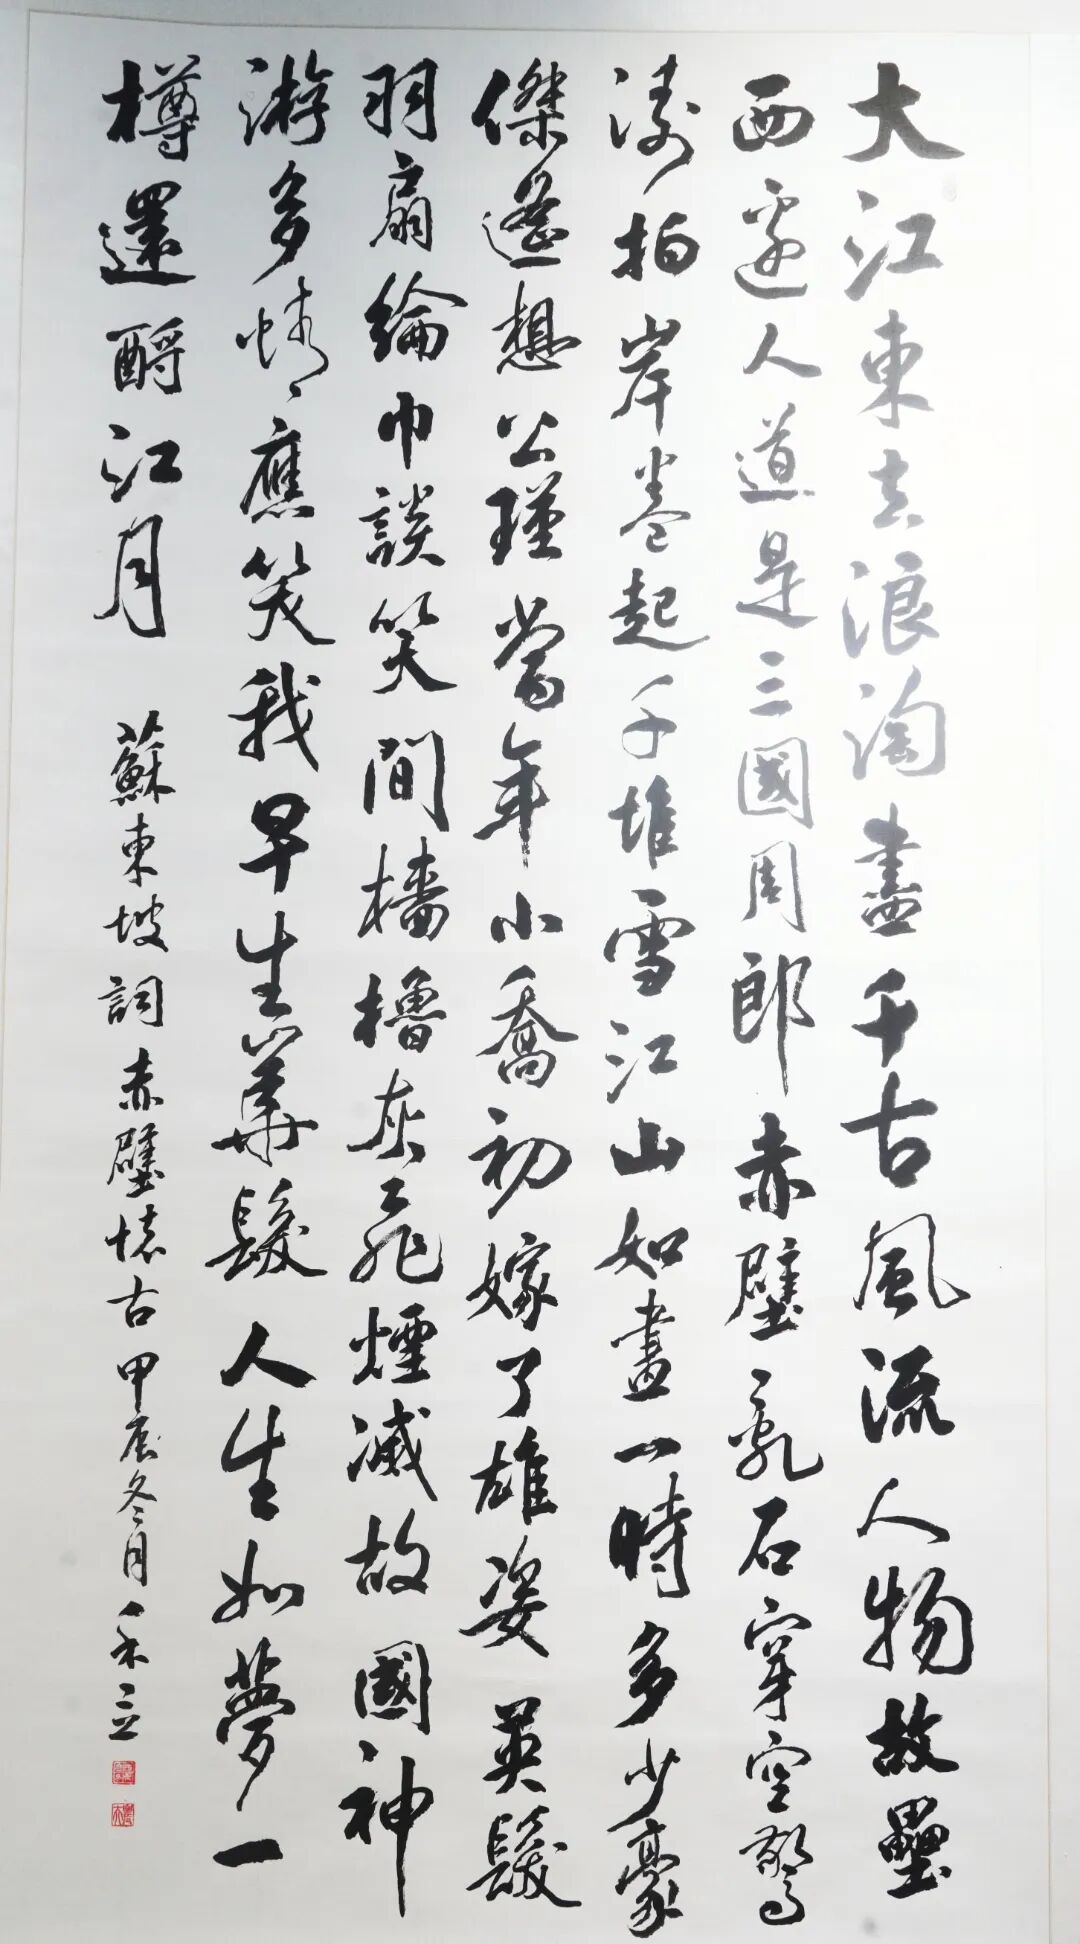 大江東去浪淘盡千古風流人物故壘
西邊人道是三國周郎赤壁亂石穿空驚
濤拍岸卷起千堆雪江山如畫一時多少豪
傑遙想公瑾當年小喬初嫁了雄姿英髮
羽扇綸巾談笑間檣櫓灰飛煙滅故國神
游多情應笑我早生華髮人生如夢一
樽還酹江月
蘇東坡詞赤壁懷古甲辰冬月禾立